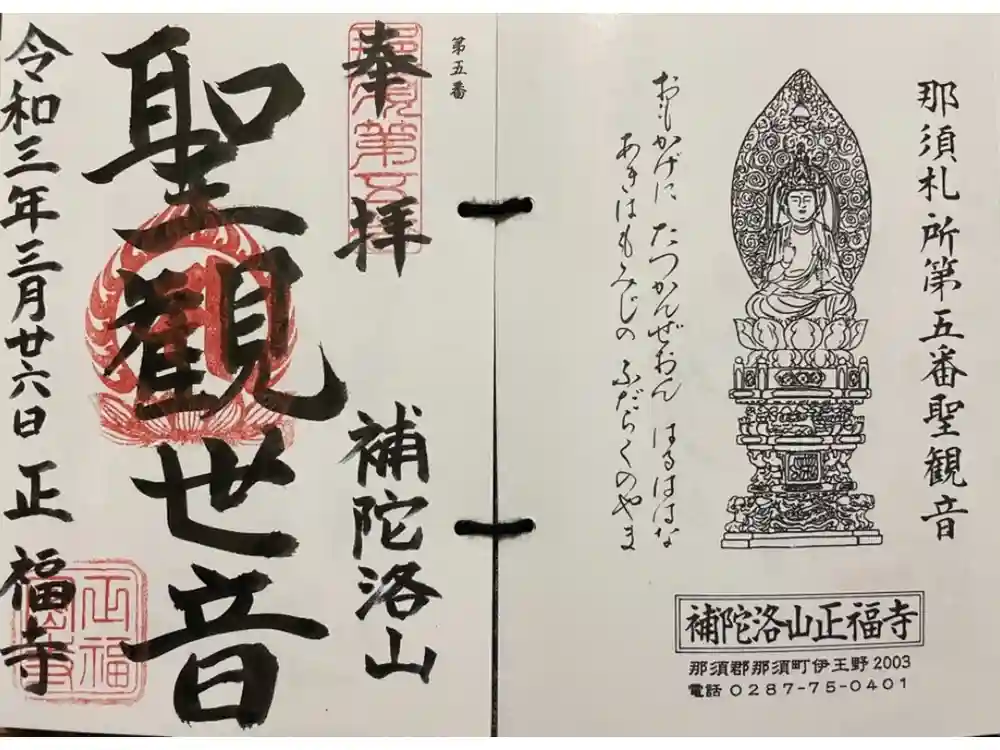 那須札所第五番聖観音
おもかげに たつかんぜおん はるははな
あきはもみじの ふだらくのやま
補陀洛山正福寺
那須郡那須町伊王野2003
電話 0287-75-0401
第五番
奉拝
那須第五
補陀洛山
聖観世音
令和三年三月廿六日
正福寺
正福